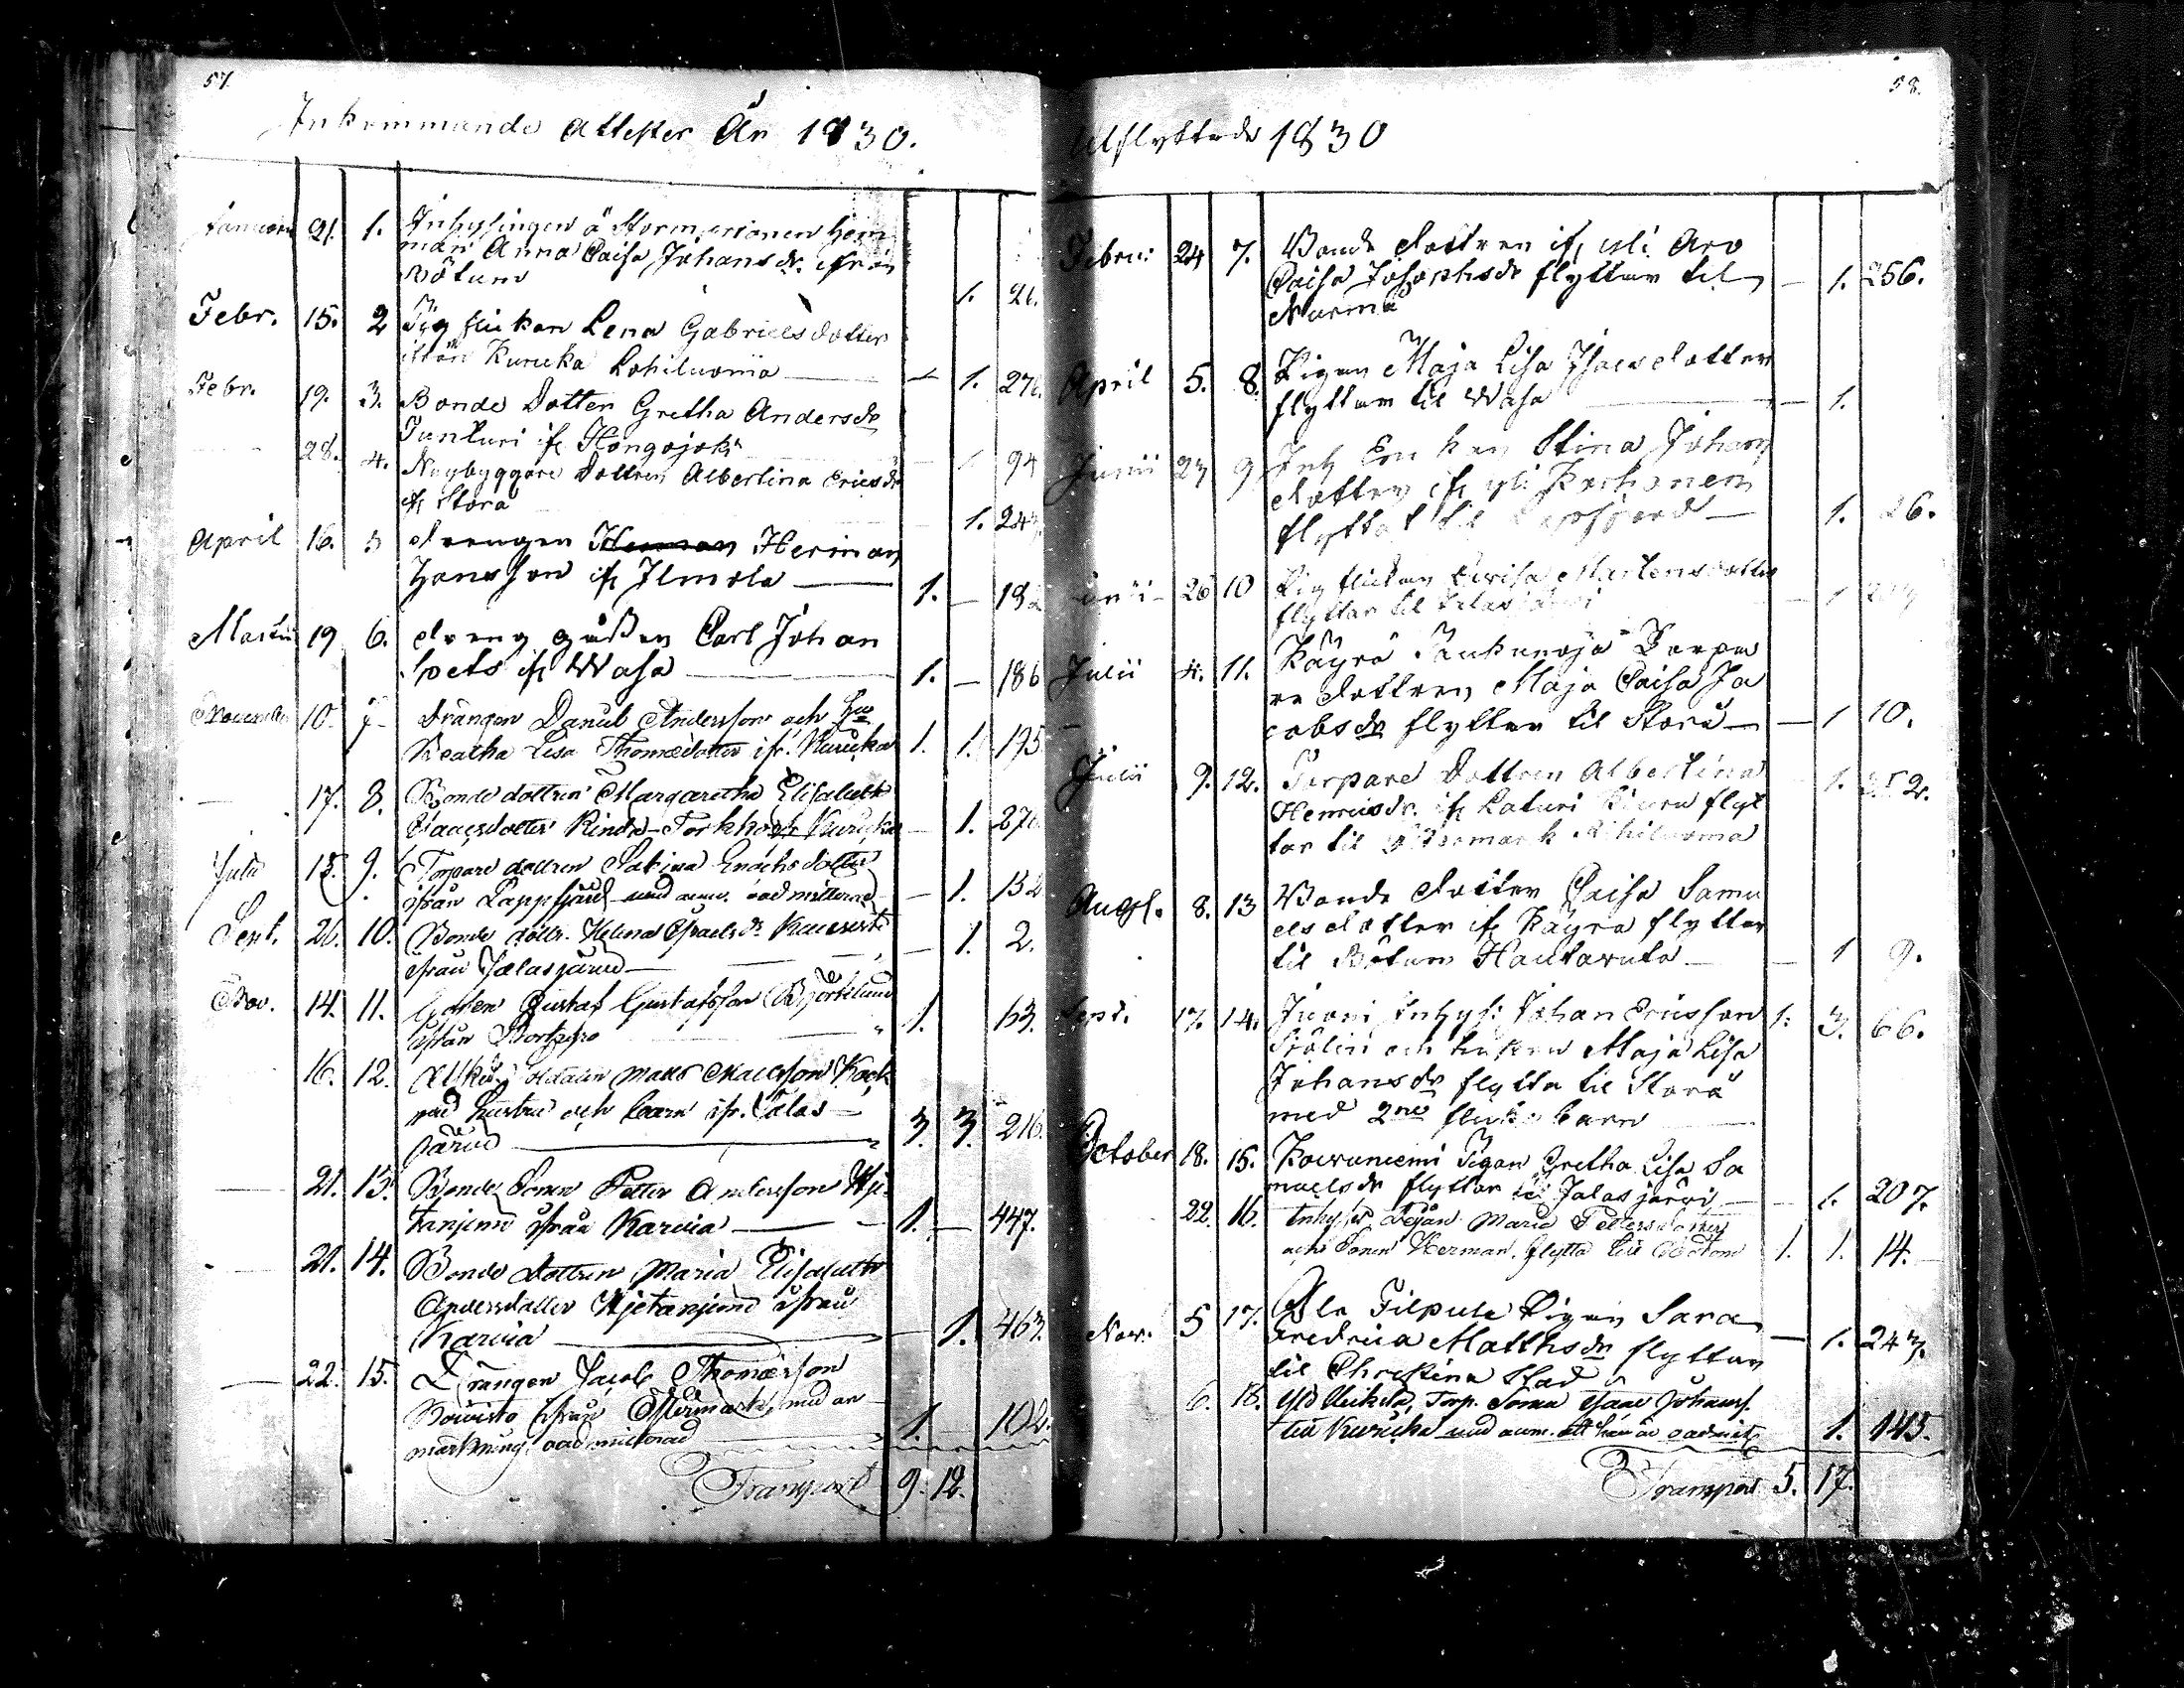 57.
Inkommande Attester År 1830.
Januari 21. 1. Inhysingen å Hem
man Anna Caisa Johansdr ifrån
Bötum 1. 21.
Febr. 15. 2 Pig flickan Lena Gabrielsdotter
ifrån Kuricka Lohiluoma 1. 276.
Febr. 19. 3. Bonde Dotter Gretha Andersdr
Tunturi ifr Hongojoki 1 94
28. 4. Nybyggare Dottren Albertina Ericsdr
ifr Storå 1. 243.
April 16. 5 drengen Herman
Hansson ifr Ilmola 1. — 182
Martii 19 6. dreng gåssen Carl Johan
Spets ifr Wasa 1. — 186
November 10. 7 Drängen Daniel Andersson och Hu
Beatha Lisa Thomædotter ifr. Kuricka 1. 1. 195
— 17. 8. Bonde dottren Margaretha Elisabeth
Isaacsdotter Rinda-Torkko ifr Kuricka — 1. 270.
Julii 15. 9. Torpare dottren Sabina Enochsdotter
ifrån Lappfjärd med anm. oadmitterad — 1. 132
Sept. 26. 10. Bonde dottr. Helena Israelsdr
ifrån Jalasjärvi — 1. 2.
Nov. 14. 11. Gossen Gustaf Gustafsson Björklund
ifrån 1. 163.
16. 12. Afsked. Soldaten Matts Mattsson Kock
med hustru och barn ifr. Jalas-
järvi 3. 3. 216.
— 21. 13. Bonde Sonen Petter Andersson
ifrån Karvia 1. — 447.
— 21. 14. Bonde Dottren Maria Elisabeth
Andersdotter ifrån
Karvia — 1. 463.
— 22. 15. Drängen Jacob Thomæsson
Koivisto ifrån Östermark, med an-
märkning, oadmitterad 1. 102.
Transport 9. 12.
58.
Utflyttade 1830
Febru: 24 7. Bonde dottren ifr yli Aro
Caisa Josephsdr flyttar til
Nurmo — 1. 256.
April 5. 8. Pigan Maja Lisa Isacsdotter
flyttar til Wasa — 1.
Junii 23 9 Inh Enkan Stina Johans
dotter ifr yli
flyttat til Lappfjärd 1. 26.
Junii 26 10 Pig flickan Lovisa Mårtensdotter
flyttar til Jalasjärvi — 1
Julii 4. 11. Käyrä Torpa
re dottren Maja Caisa Ja
cobsdr flyttar til Storå — 1 10.
Julii 9. 12. Torpare Dottren Albertina
Henricsdr. ifr flyt
tar til Östermark — 1. 252.
Aug. 8. 13 Bonde dotter Caisa Samu
elsdotter ifr Käyrä flyttar
til Bötum — 1 9.
Sept. 17. 14. Inhys: Johan Ericsson
Sjölin och hustru Maja Lisa
Johansdr flytta til Storå
med 2ne flicko barn 1: 3. 66.
October 18. 15. Koivuniemi Pigan Gretha Lisa Sa
muelsdr flyttar til Jalasjärvi — 1. 207.
22. 16. Inhyses Maria Pettersdotter
och Sonen Herman. flytta till Bötom 1. 1. 14.
Nov. 5 17. Ala Filpula Pigan Sara
Fredrica Matthsdr flyttar
til Christina Stad — 1. 243.
6. 18. Torp. Sonen Isaac Johanss.
till Kuricka med anm. att han är oadmit. 1. 145.
Transport 5. 17.